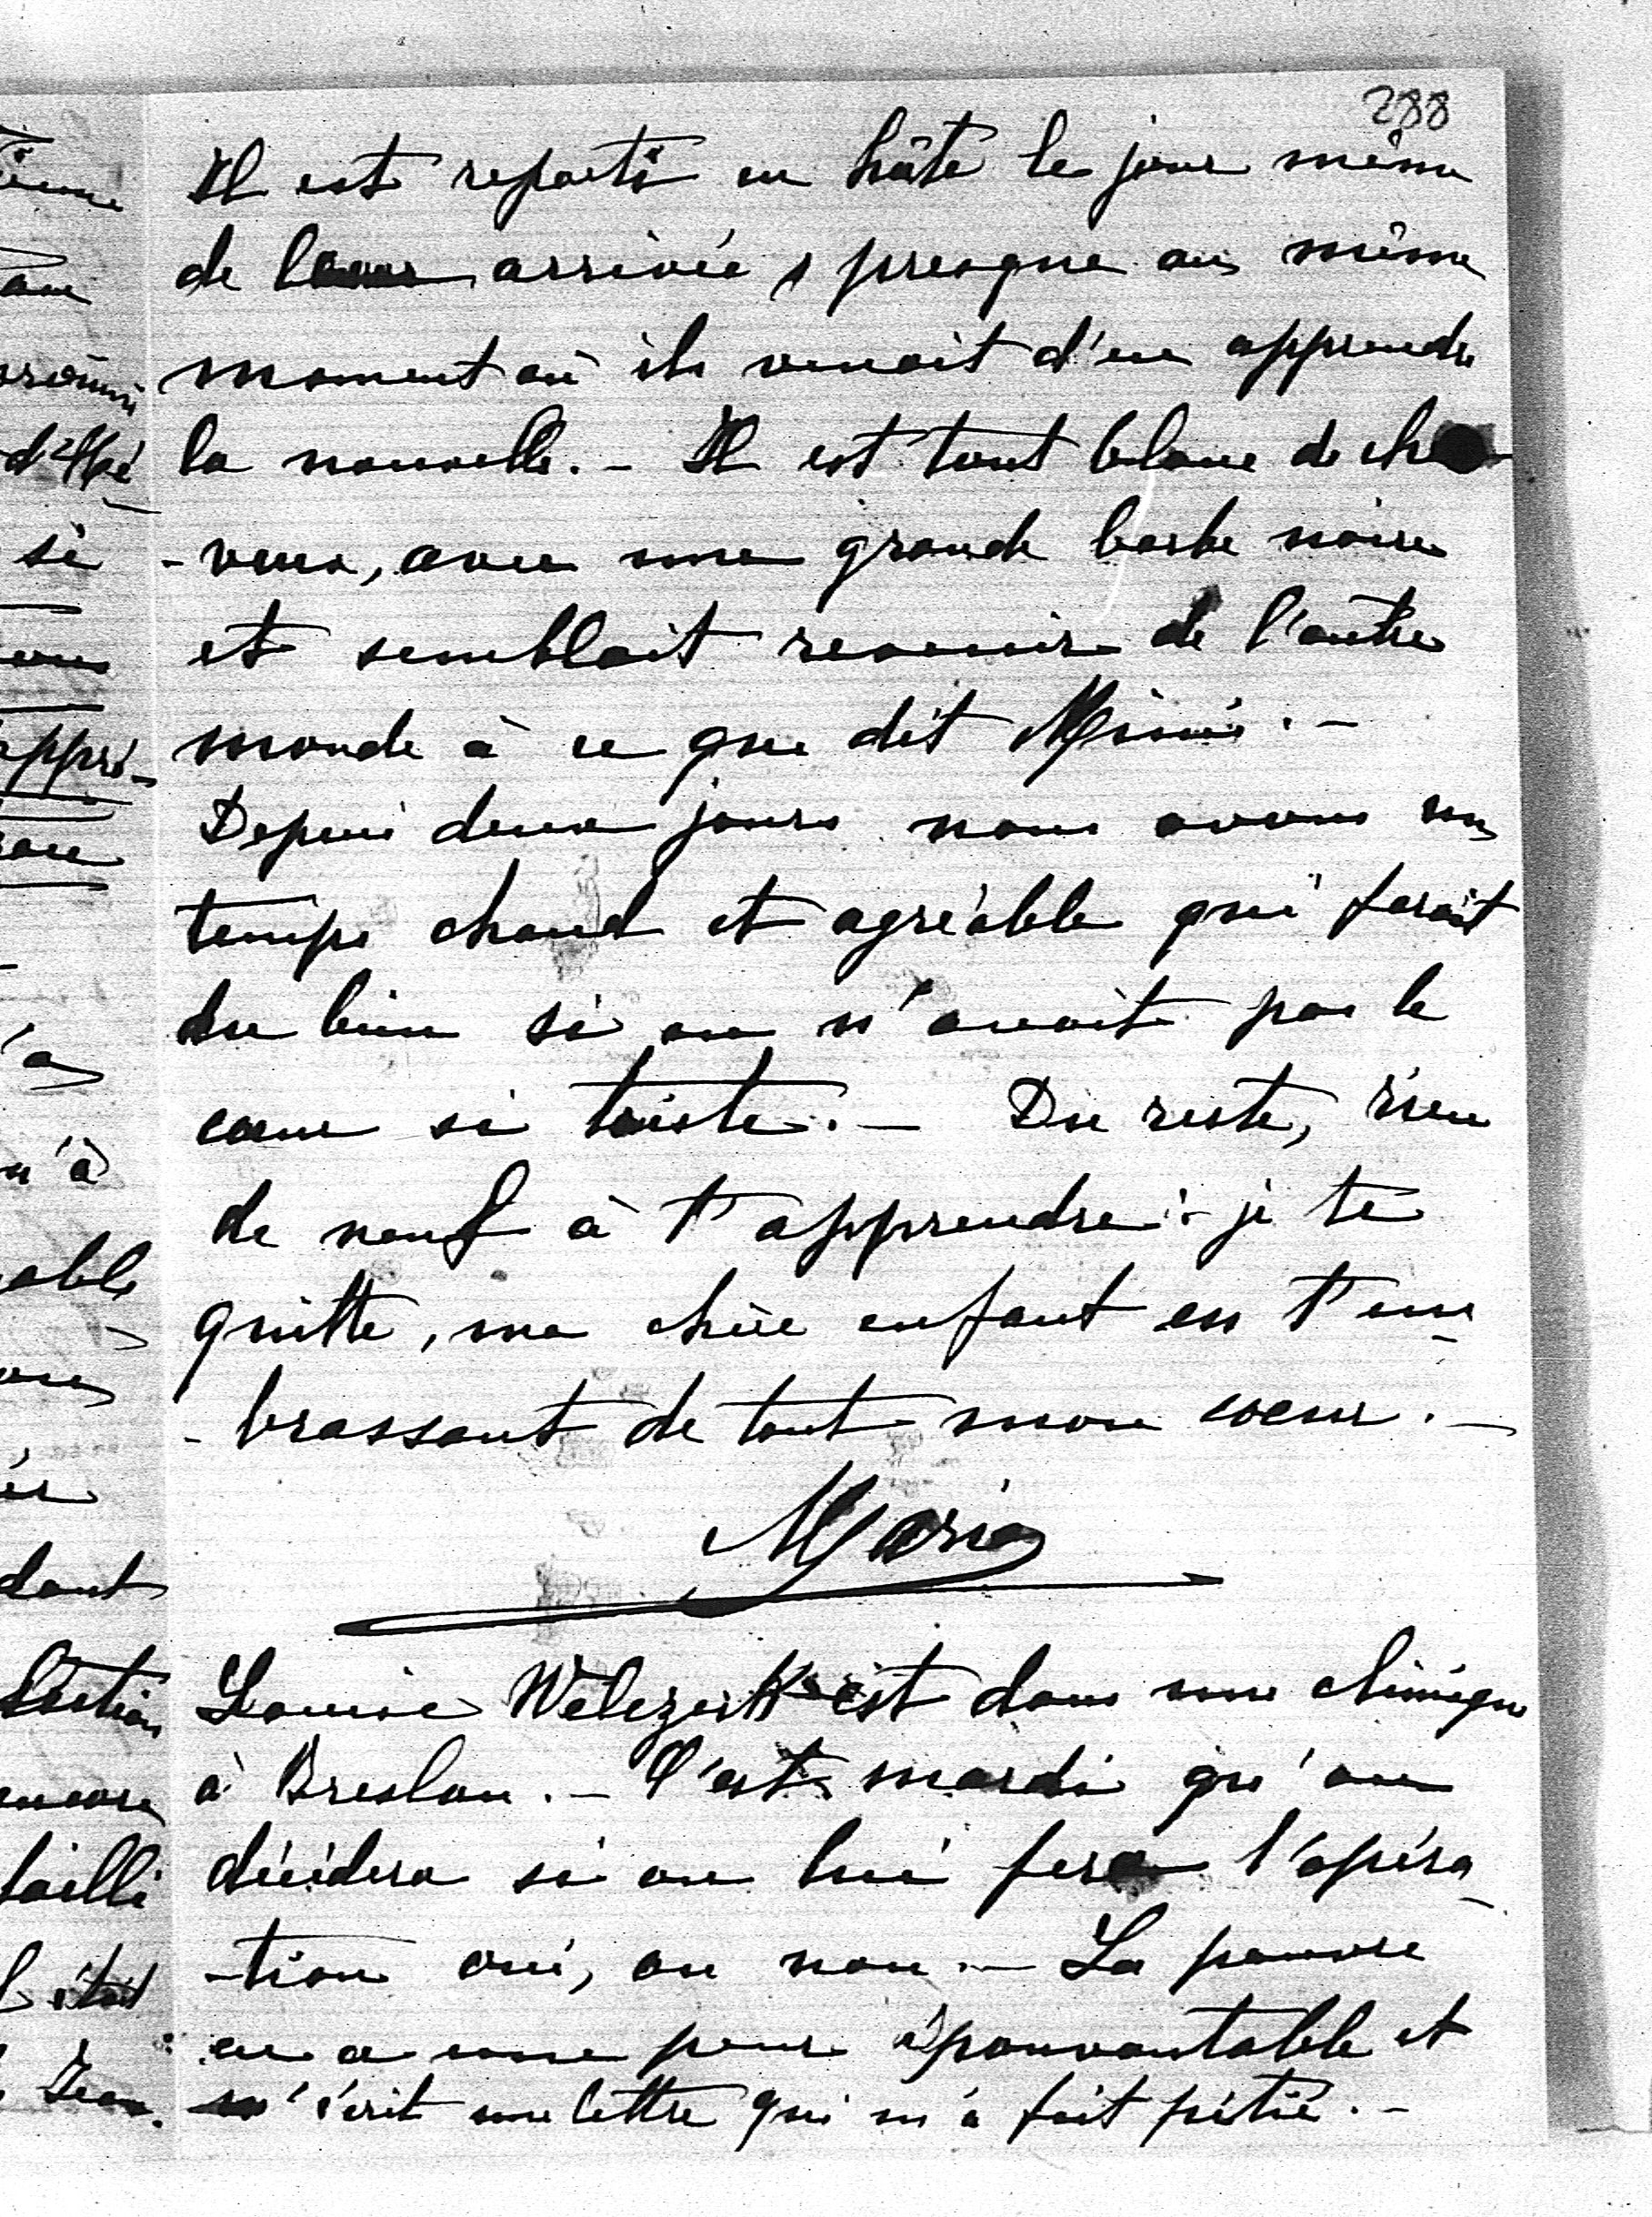 288
Il est reparti en hâte le jour même
de leur arrivée, presque au même
moment où ils venait d'en apprendre
la nouvelle. - Il est tout blanc de che
-veux, avec une grande barbe noire
et semblait revenir de l'autre
monde à ce que dit Mimi. -
Depuis deux jours nous avons un
temps chaud et agréable qui ferait
du bien si on n'avait pas le
coeur si triste. - Du reste, rien
de neuf à t'apprendre : je te
quitte, ma chère enfant en t'em-
-brassant de tout mon coeur. -
Marie
Louise est dans une clinique
à Breslau. - C'est mardi qu'on
décidera si on lui fera l'opéra-
-tion oui, ou non. - La pauvre
en a une peur épouvantable et
m'écrit une lettre qui m'a fait pitié. -